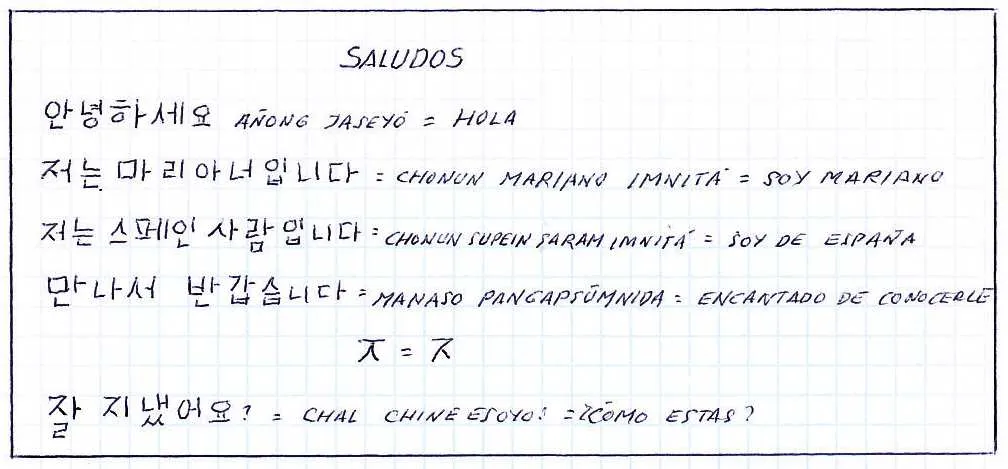 SALUDOS
안녕하세요 AÑONG JASEYÓ = HOLA
저는 마리아너입니다 = CHONUN MARIANO IMNITÁ = SOY MARIANO
저는 스페인 사람입니다 = CHONUN SUPEIN SARAM IMNITÁ = SOY DE ESPAÑA
만나서 반갑습니다 = MANASO PANGAPSÚMNIDA = ENCANTADO DE CONOCERLE
ㅈ = ㅈ
잘 지냈어요? = CHAL CHINE ESOYO? = ¿CÓMO ESTAS?